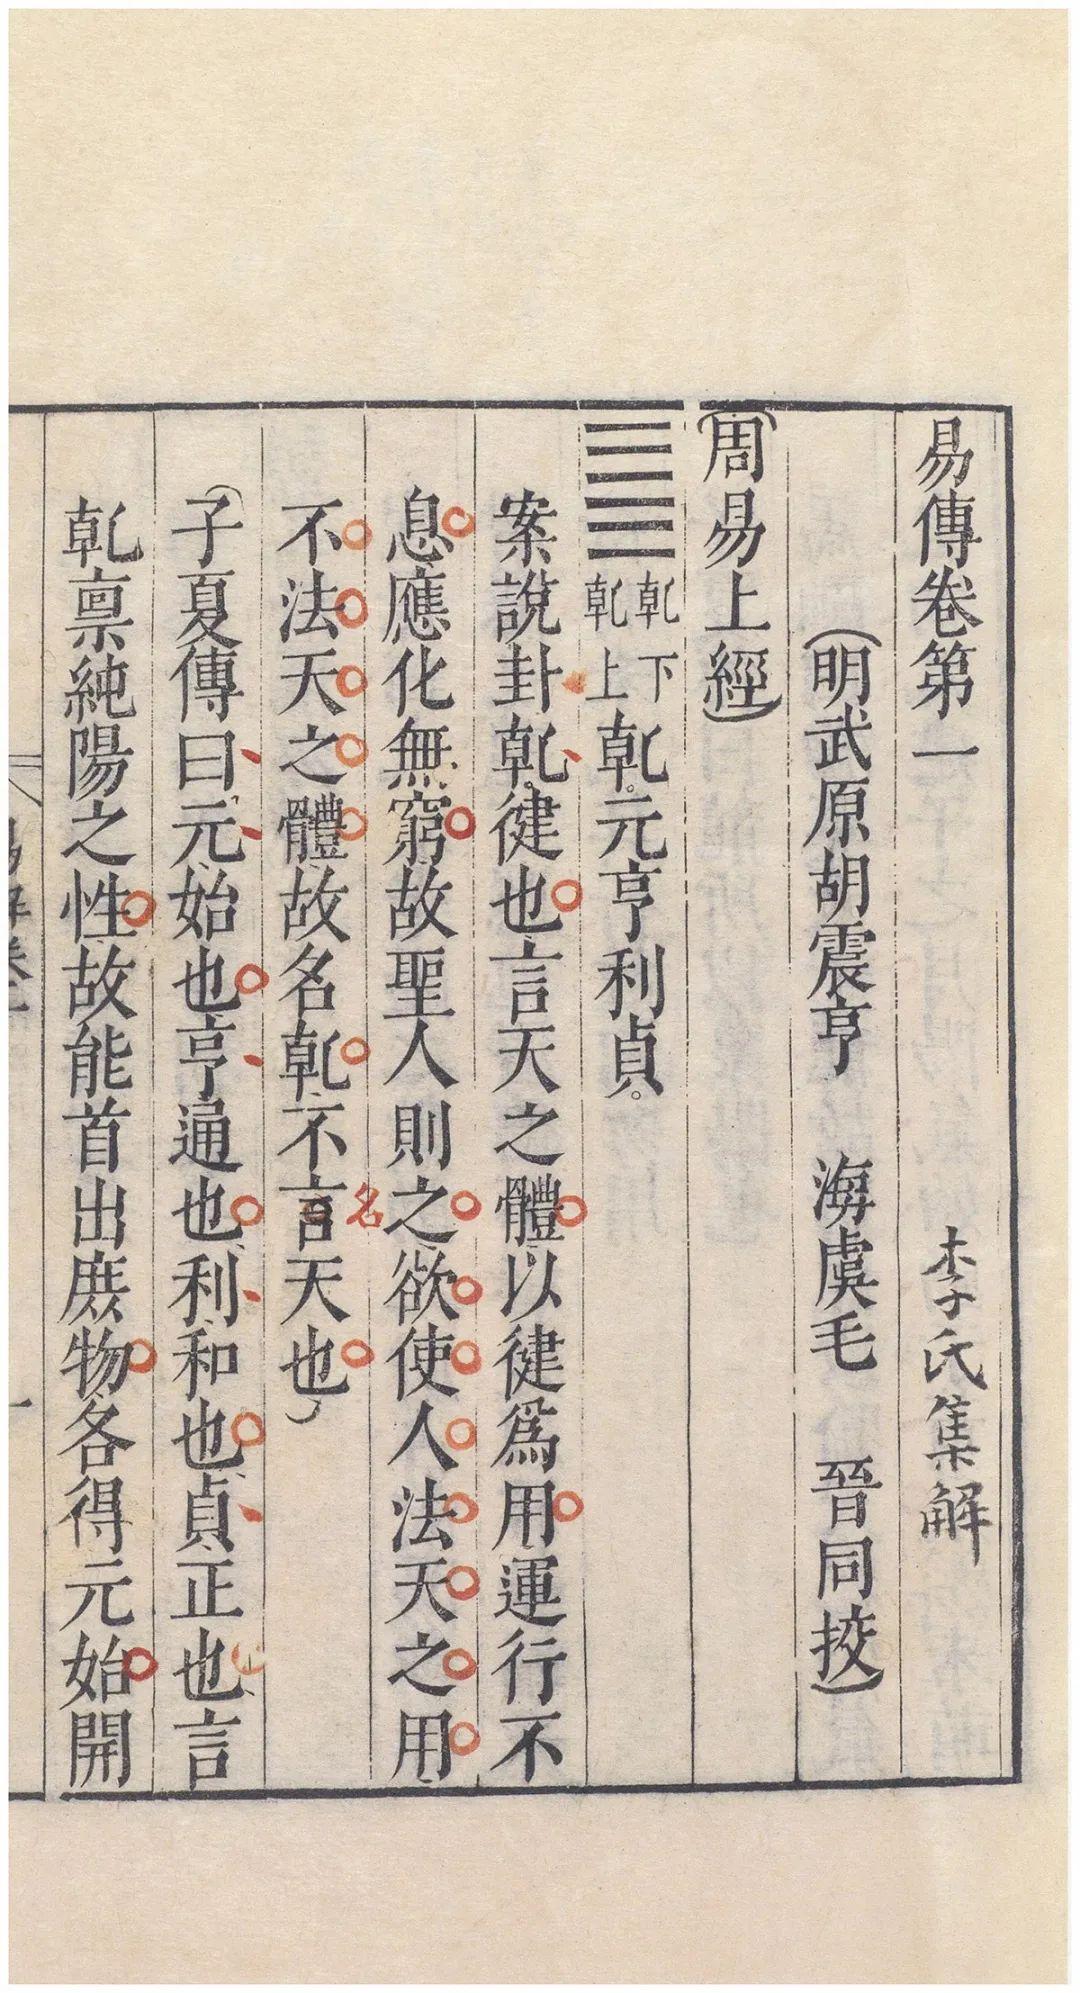 易傳卷第一 李氏集解
明武原胡震亨 海虞毛 晉同挍
周易上經
乾下
乾上
乾元亨利貞
案說卦乾徤也言天之體以徤爲用運行不
息應化無窮故聖人則之欲使人法天之用
不法天之體故名乾不言天也
名
子夏傳曰元始也亨通也利和也貞正也言
乾禀純陽之性故能首出庶物各得元始開